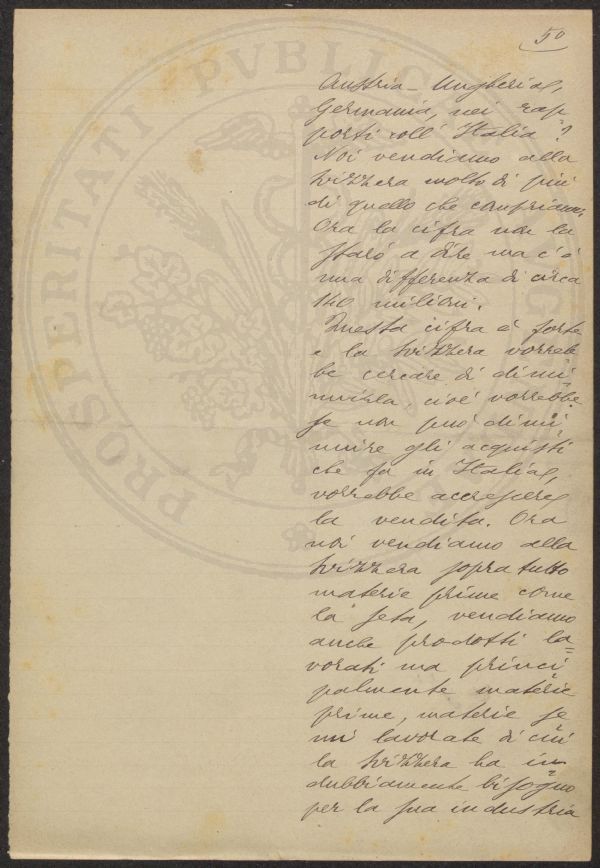 50
Austria-Ungheria,
Germania, nei rap
porti coll' Italia?
Noi vendiamo alla
Svizzera molto di più
di quello che compriamo.
Ora la cifra non la
starò a dire ma c'è
una differenza di circa
140 milioni.
Questa cifra è forte
e la Svizzera vorreb
be cercare di dimi
nuirla, cioè vorrebbe
se non può dimi
nuire gli acquisti
che fa in Italia,
vorrebbe accrescere
la vendita. Ora
noi vendiamo alla
Svizzera sopratutto
materie prime come
la seta, vendiamo
anche prodotti la=
vorati ma princi
palmente materie
prime, materie se
mi lavorate di cui
la Svizzera ha in
dubbiamente bisogno
per la sua industria
PROSPERITATI PVBLICAE